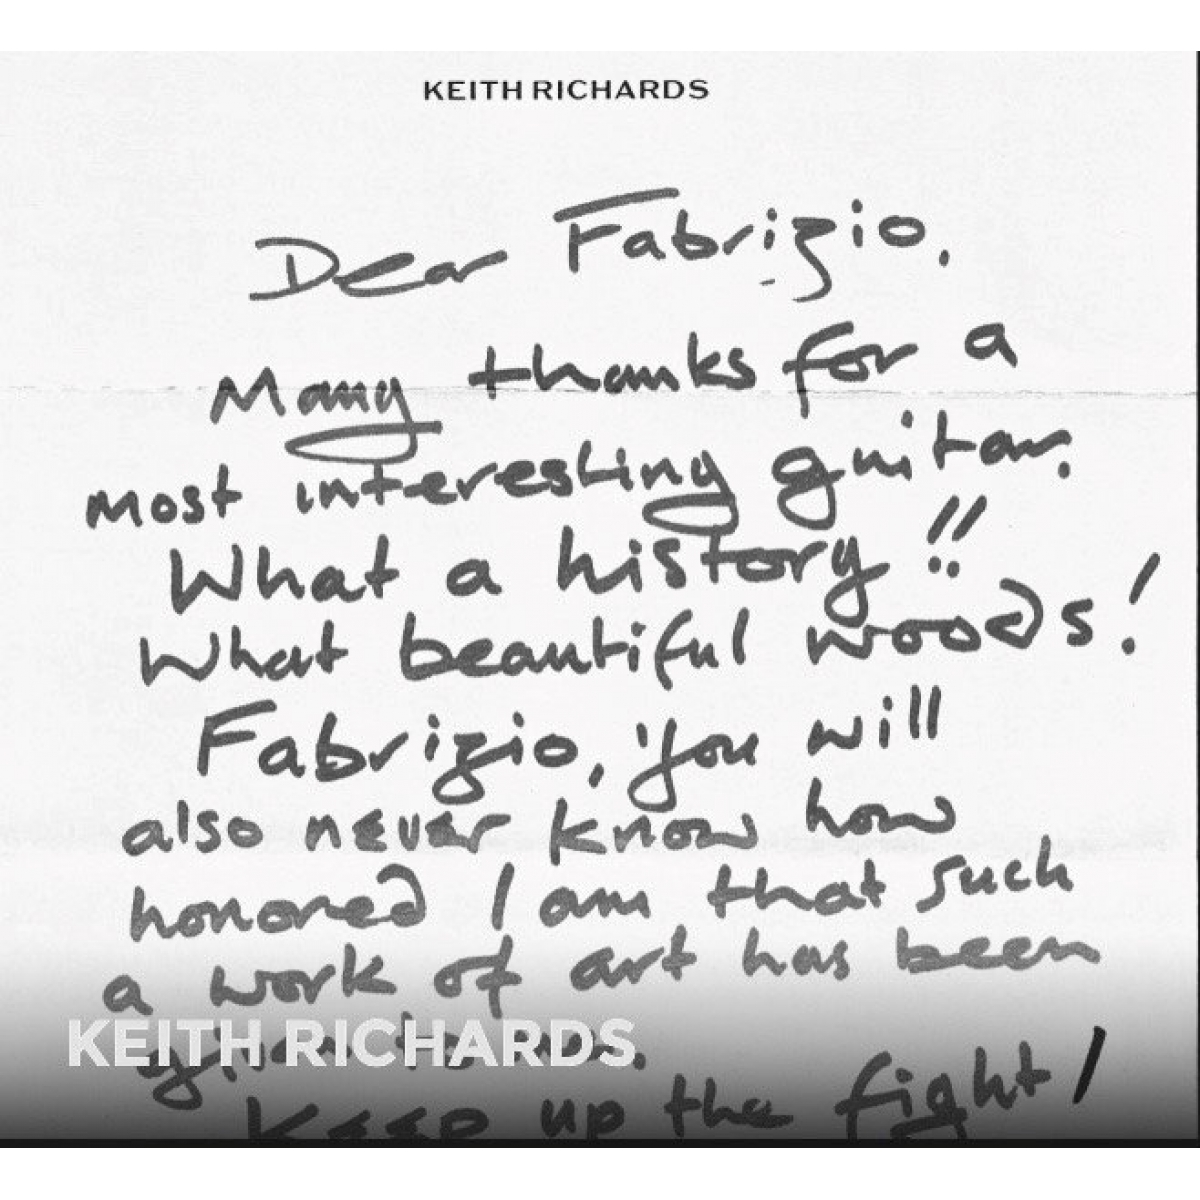 KEITH RICHARDS
Dear Fabrizio,
Many thanks for a
most interesting guitar.
What a history!!
What beautiful woods!
Fabrizio, you will
also never know how
honored I am that such
a work of art has been
given to me.
KEITH RICHARDS
Keep up the fight!